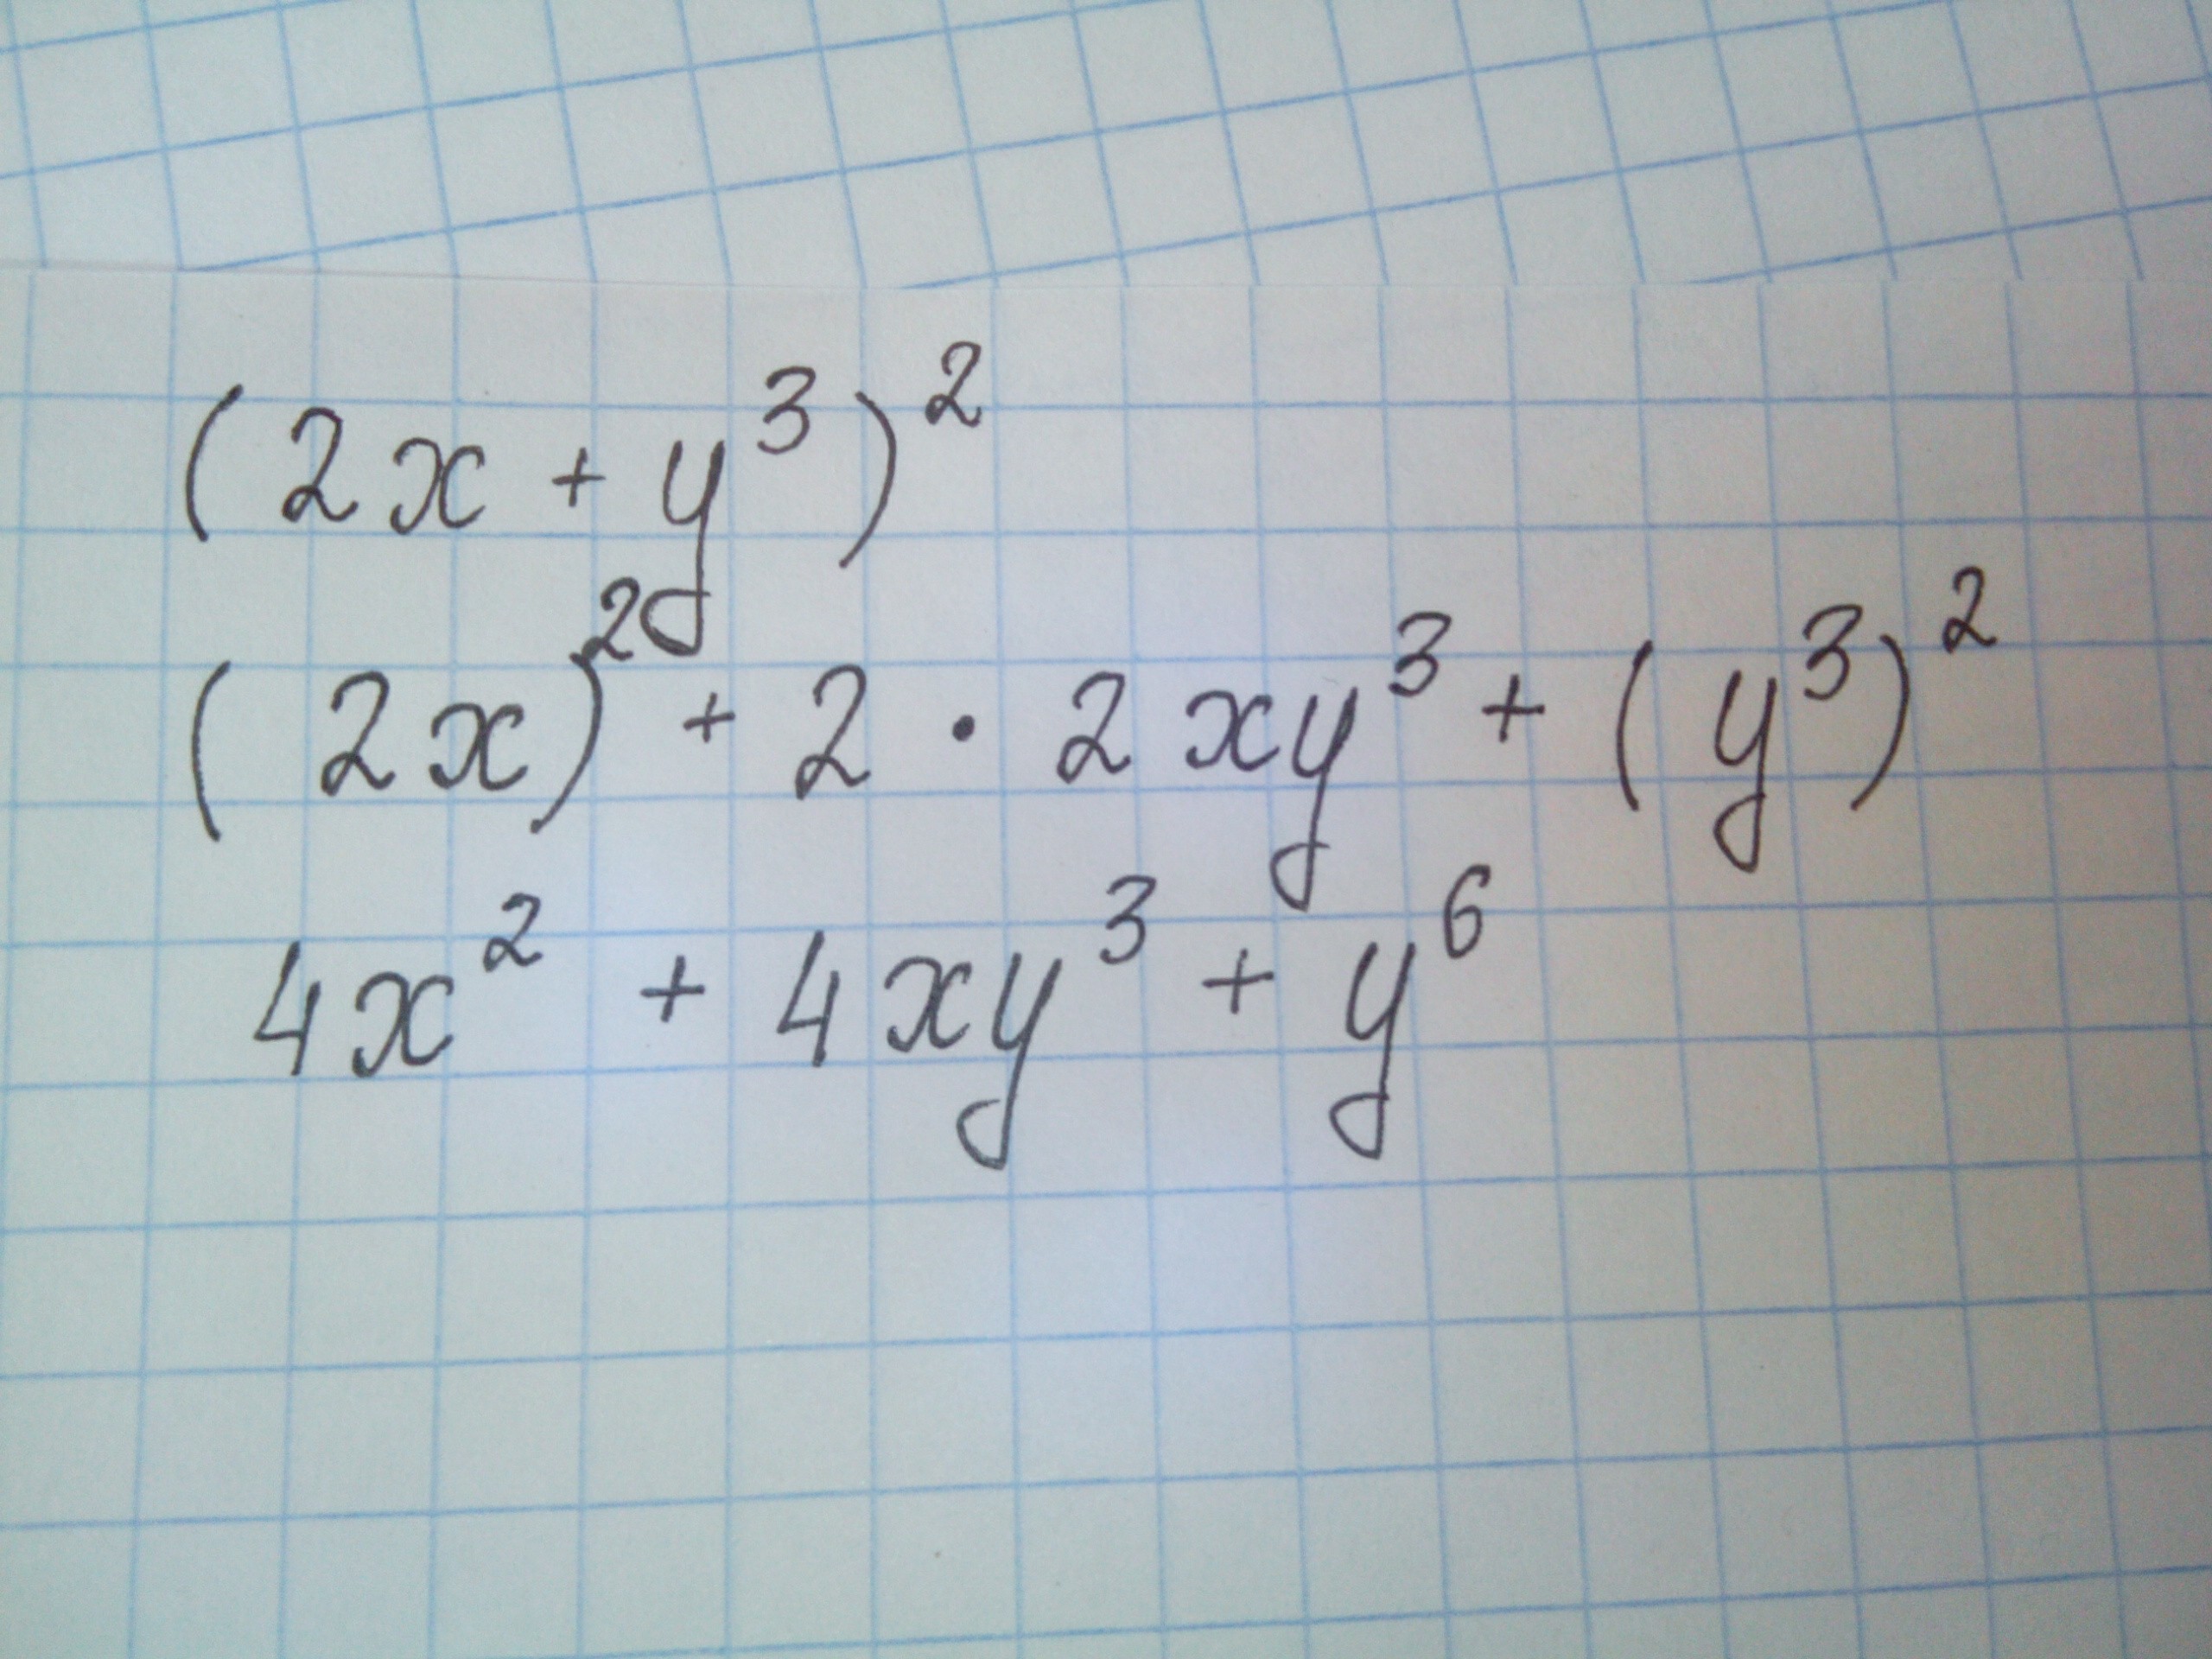 (2x + y³)²
(2x)² + 2 · 2xy³ + (y³)²
4x² + 4xy³ + y⁶